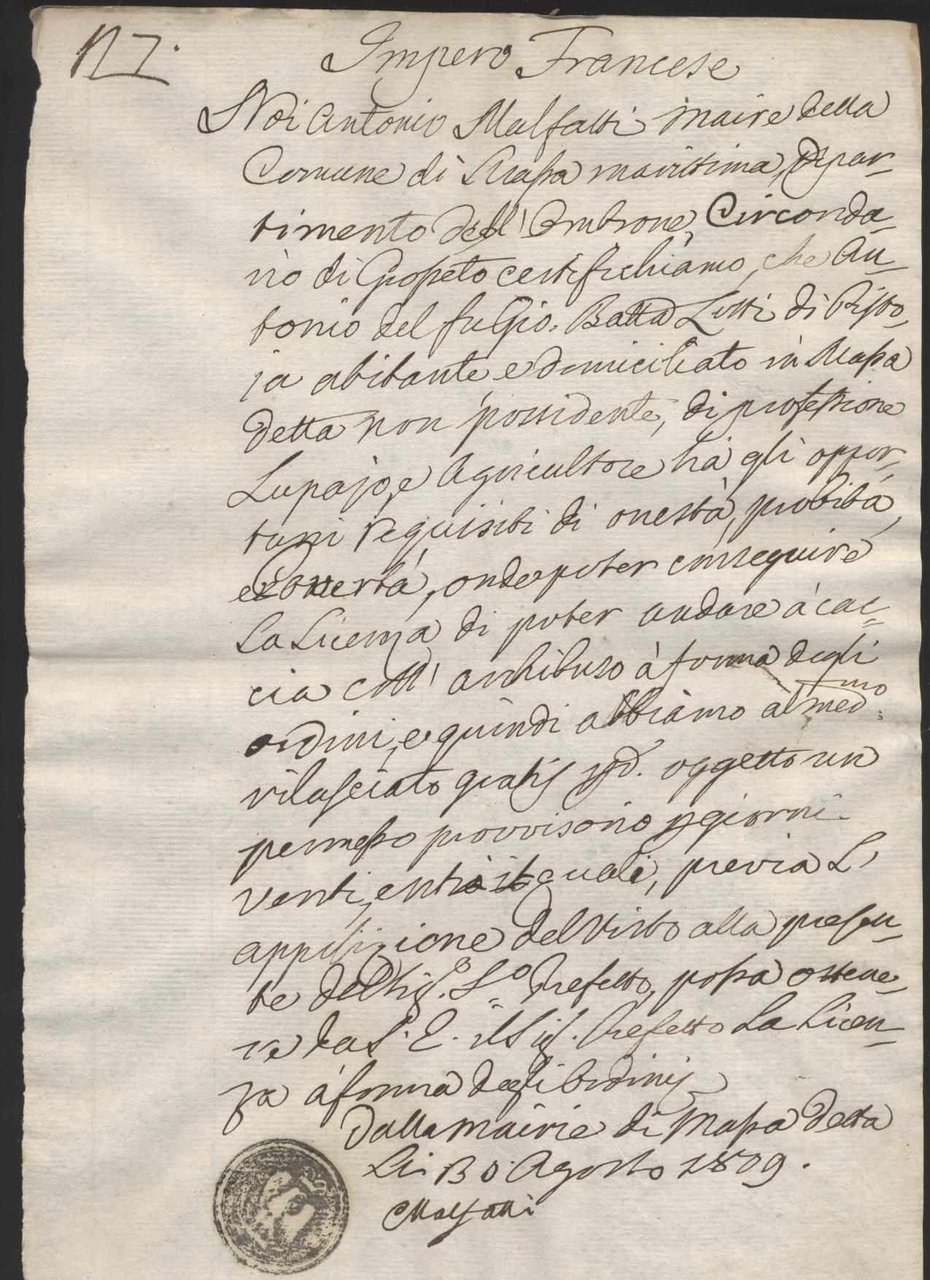 127.
Impero Francese
Noi Antonio Malfatti Maire della
Comune di Massa marittima, Dipar-
timento dell' Ombrone, Circonda-
rio di Grosseto certifichiamo, che An-
tonio del fu Gio. Batta Lotti di Pisto-
ja abitante e domiciliato in Massa
detta non possidente, di professione
Lupajo, e Agricoltore hà gli oppor-
tuni requisiti di onestà, probità,
e onde poter conseguire
La Licenza di poter andare à cac-
cia coll' archibuso à forma degli
ordini, e quindi abbiamo al med.mo
rilasciato gratis pd. oggetto un
permesso provvisorio p giorni
venti, entro it quali, previa L'
apposizione del visto alla presen-
te del Sig.e S.o Prefetto, possa ottene-
re da S. E. il Sig. Prefetto La Licen-
za à forma degli ordini
Dalla Mairie di Massa detta
Li 30 Agosto 1809.
Malfatti